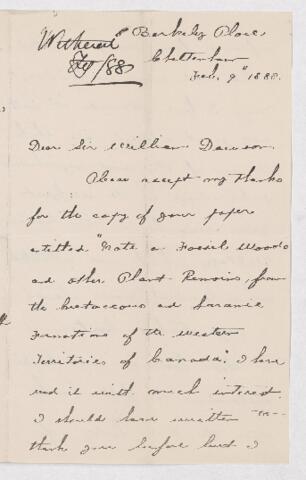 Witherell
Feb/88
Berkeley Place,
Cheltenham
Feb. 9th 1888.
Dear Sir William Dawson,
Please accept my thanks
for the copy of your paper
entitled "Note on Fossil Woods
and other Plant Remains, from
the Cretaceous and Laramie
Formations of the Western
Territories of Canada". I have
read it with much interest.
I should have written to
thank you before but I